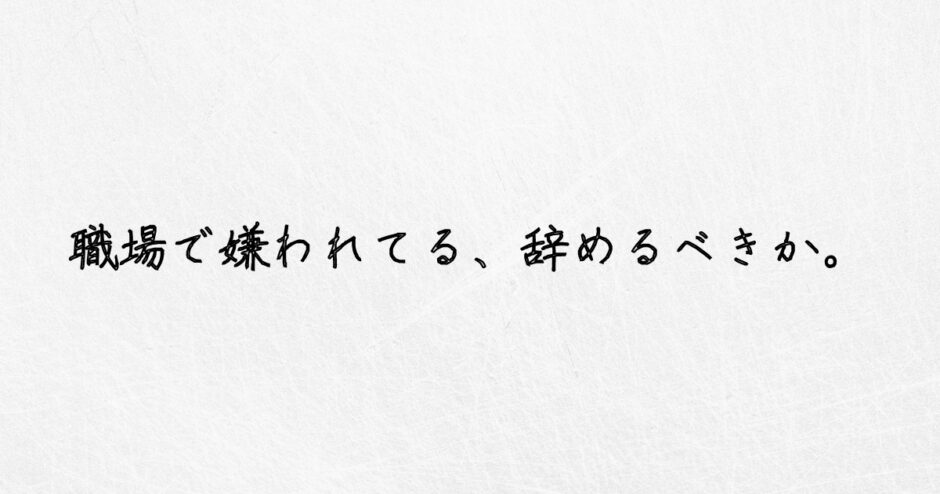 職場で嫌われてる、辞めるべきか。